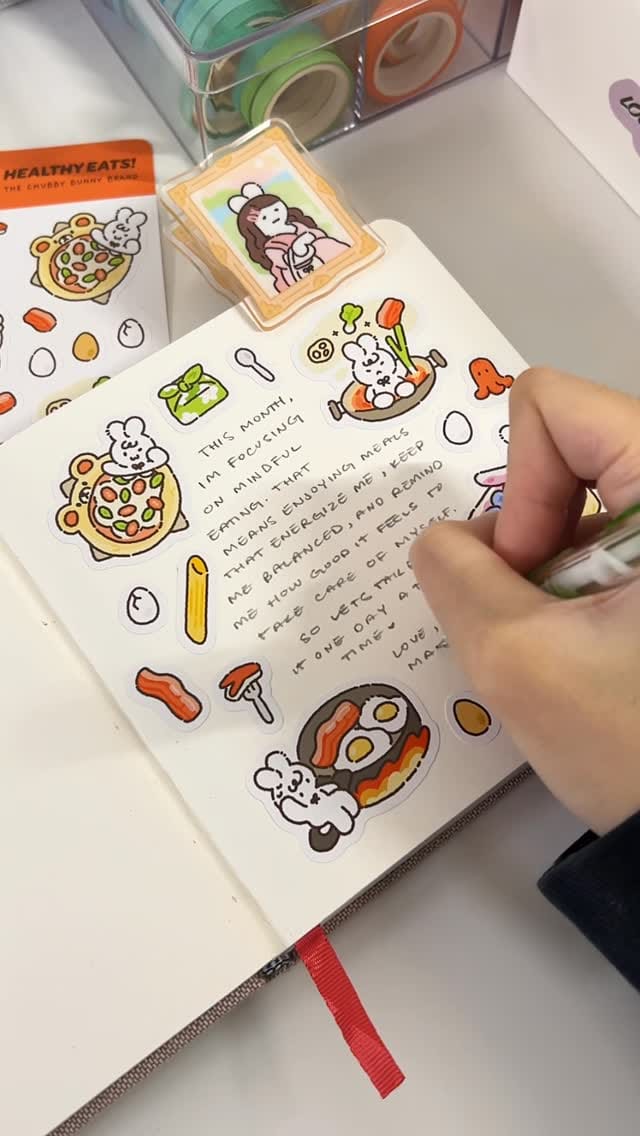 HEALTHY EATS!
THE CHUBBY BUNNY BRAND
THIS MONTH,
IM FOCUSING
ON MINDFUL
EATING. THAT
MEANS ENJOYING MEALS
THAT ENERGIZE ME, KEEP
ME BALANCED, AND REMIND
ME HOW GOOD IT FEELS TO
TAKE CARE OF MYSELF.
SO LETS
IT ONE DAY A
TIME
LOVE